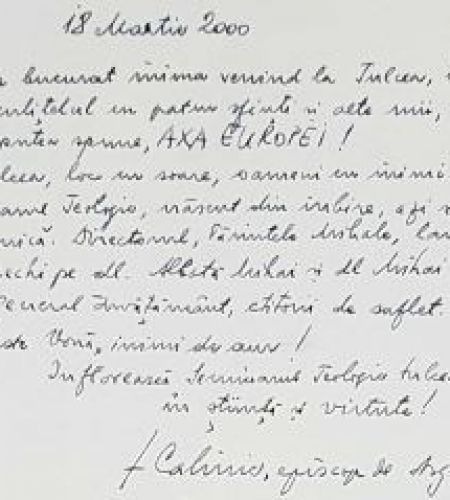 18 Martie 2000
bucurat inima venind la Tulcea,
cu patru sfinți și alte mii,
spune, AXA EUROPEI!
loc cu soare, oameni cu inimi
Teologic, născut din iubire, azi
Directorul, Părintele Mihale,
pe dl. Albotă Mihai și dl Mihai
General Învățământ, ctitori de suflet.
Vouă, inimi de aur!
Înflorească Seminarul Teologic Tulce
în știință și virtute!
† Calinic, episcop de Arg